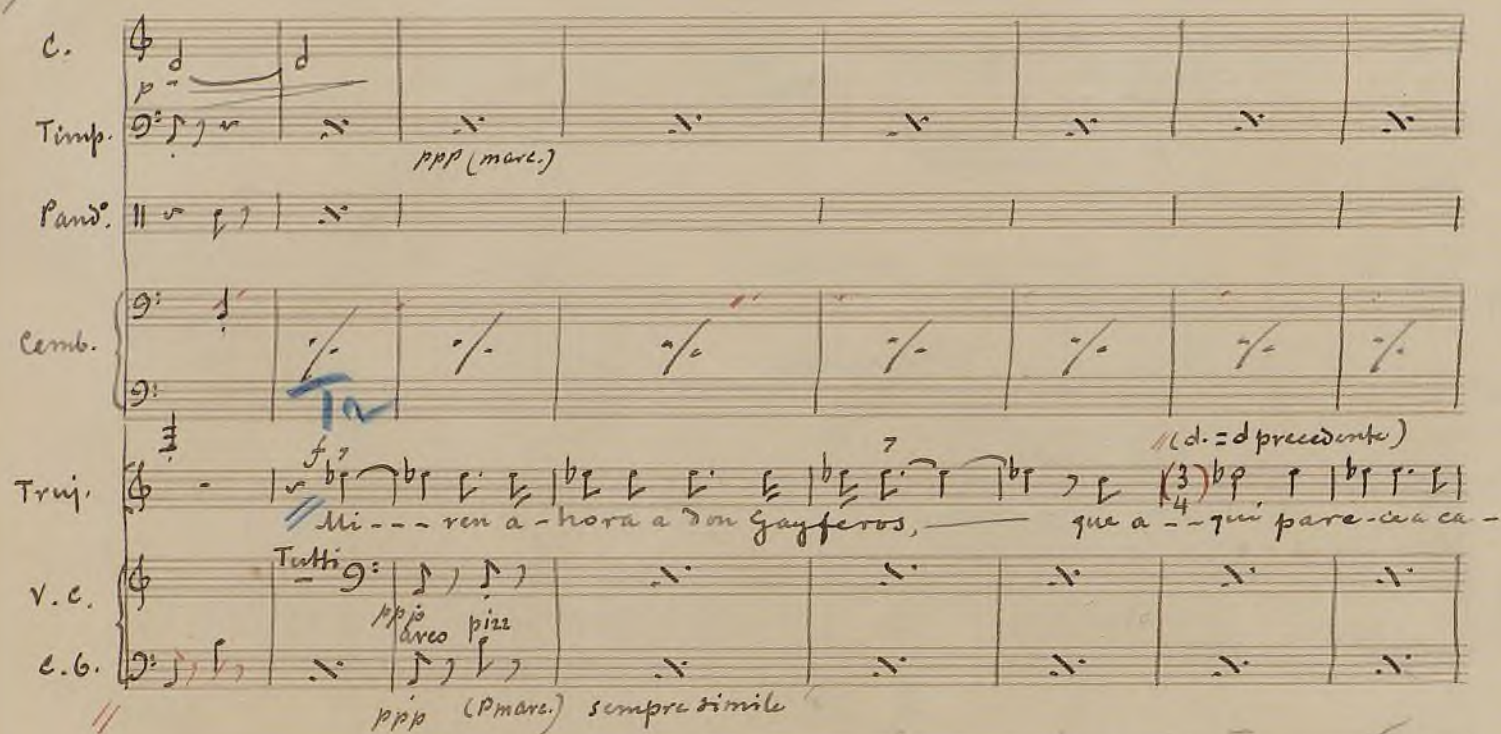 C.
p
Timp.
ppp (marc.)
Pandº.
Cemb.
Ta
(d. = d precedente)
f
Truj.
(3
4)
Mi - - - ren a - hora a don Gayferos, que a - - qui pare-cea ca -
Tutti
V.C.
ppp
arco pizz
C.B.
ppp (P marc.) sempre simile